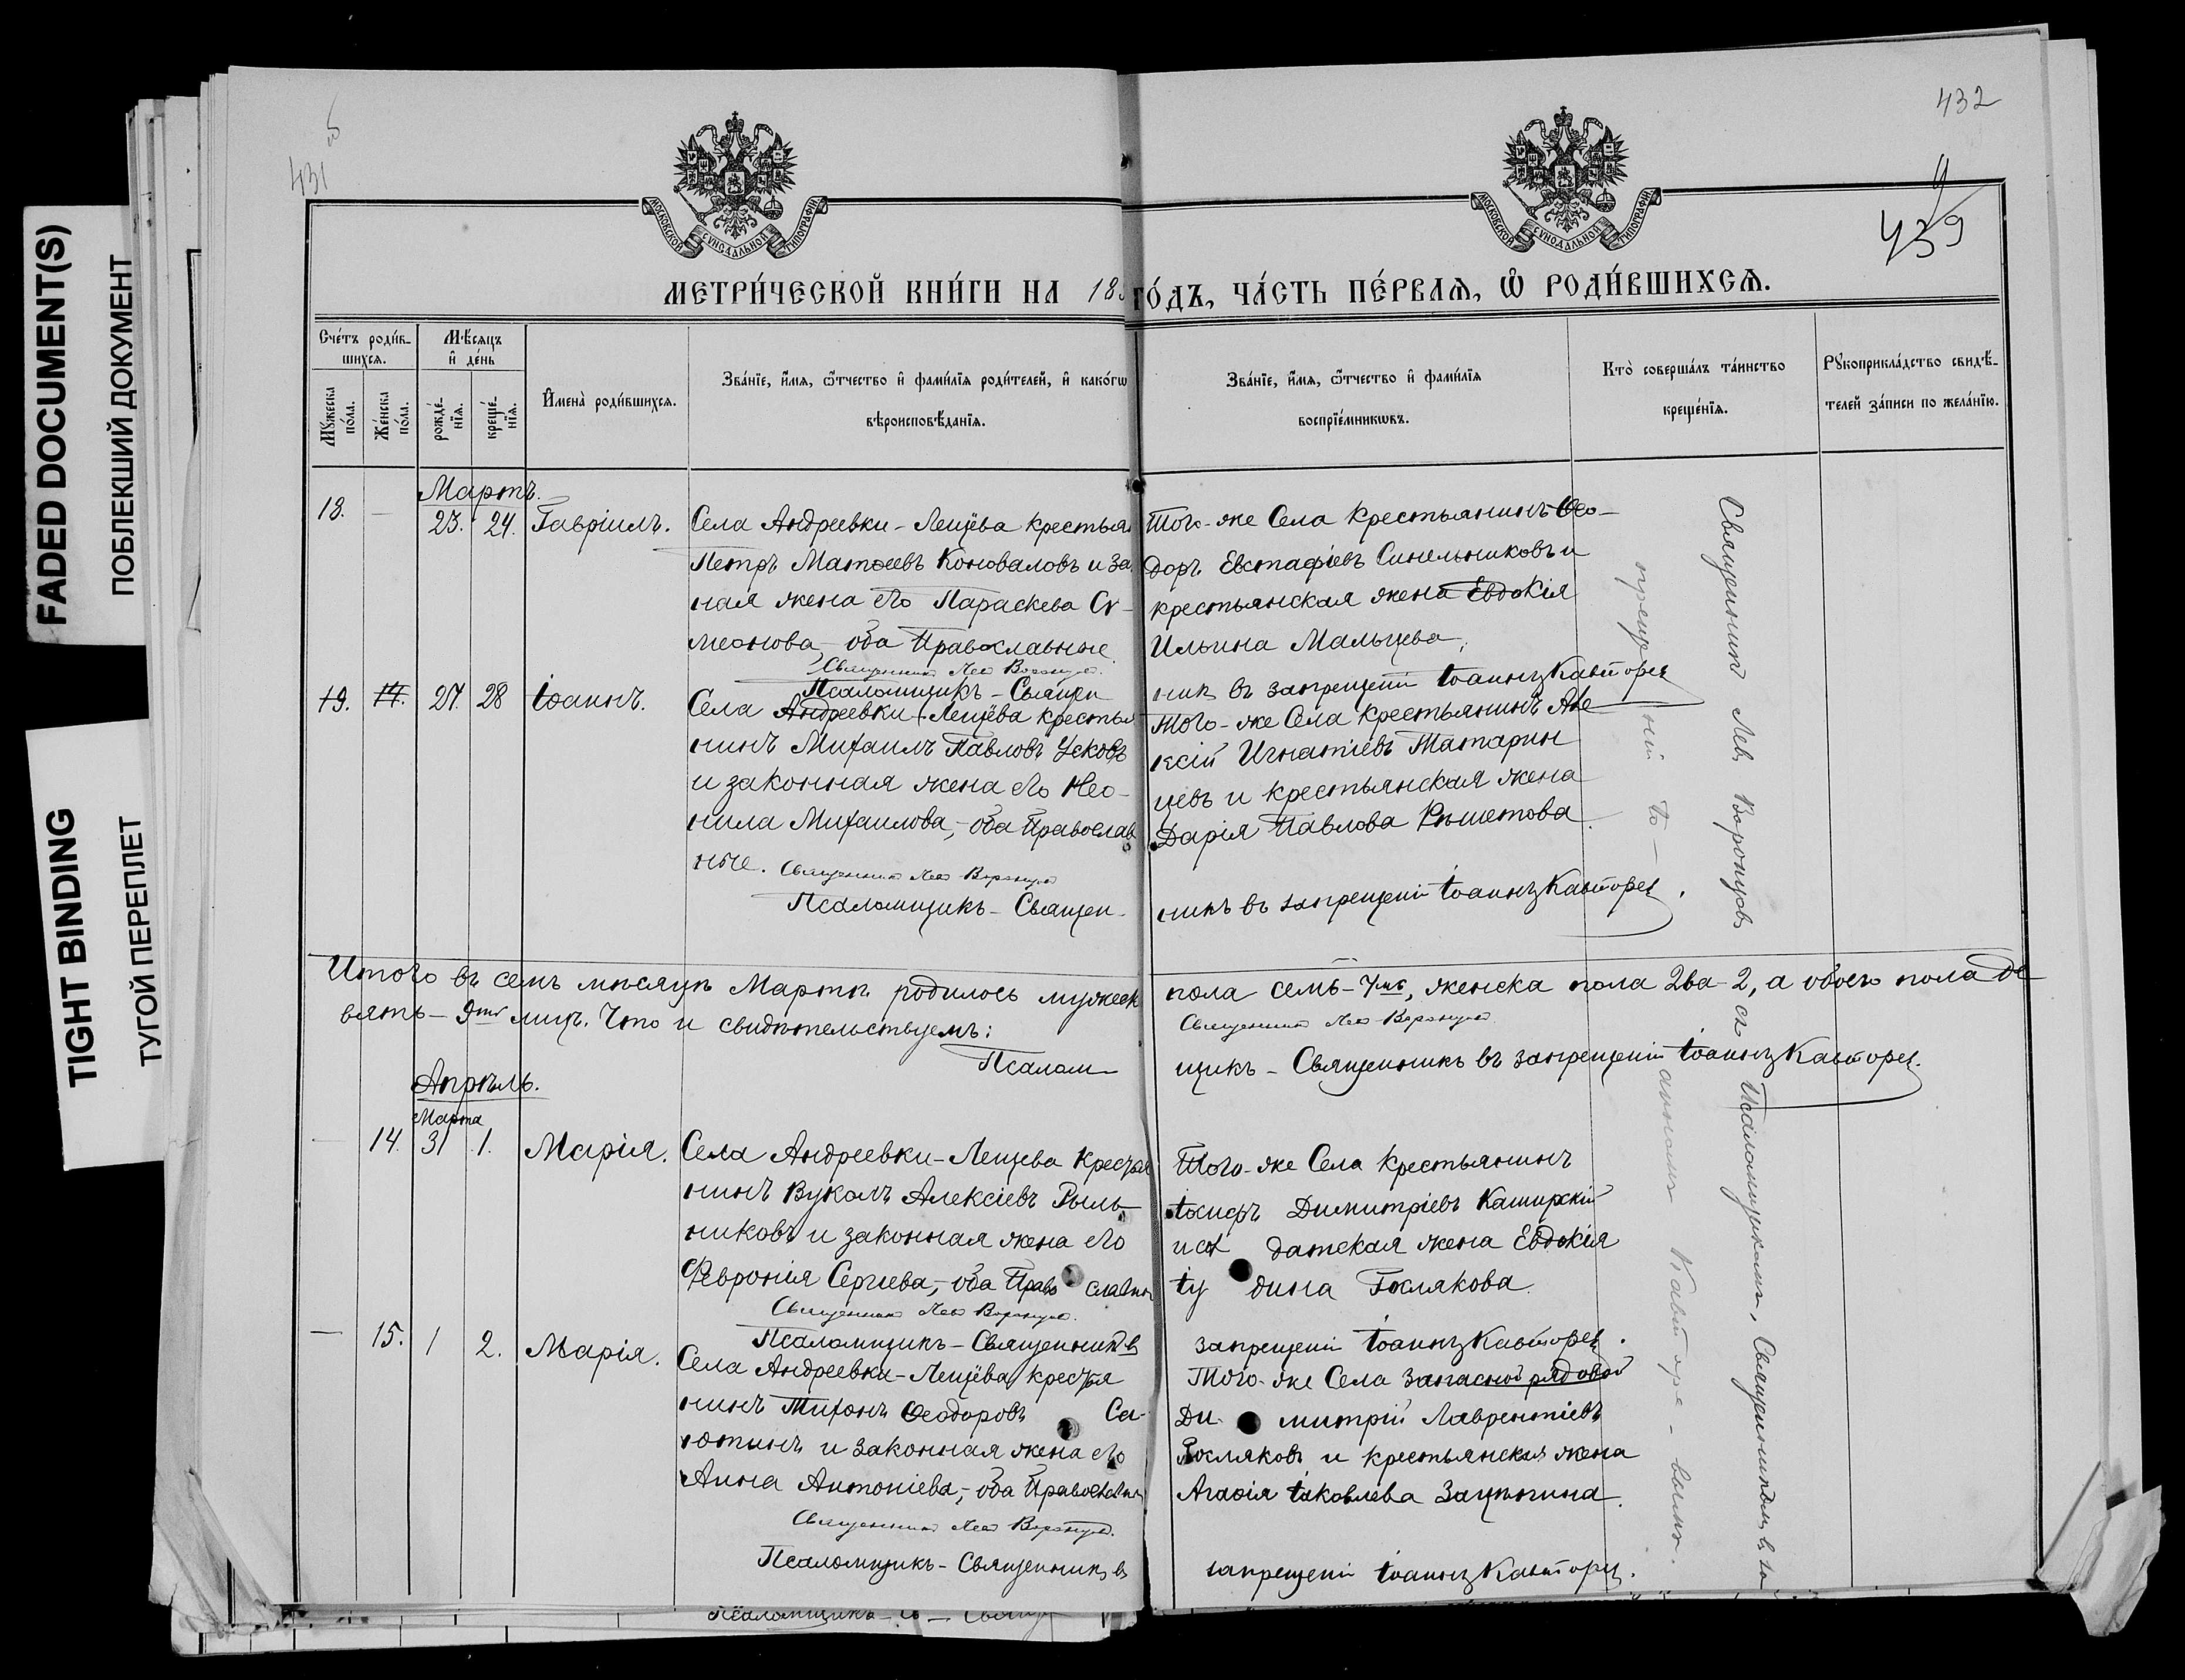 FADED DOCUMENT(S)
ПОБЛЕКШИЙ ДОКУМЕНТ
TIGHT BINDING
ТУГОЙ ПЕРЕПЛЕТ
431
432
439
МОСКОВСКОЙ СѴНОДАЛЬНОЙ ТИПОГРАФІИ
МОСКОВСКОЙ СѴНОДАЛЬНОЙ ТИПОГРАФІИ
МЕТРИ́ЧЕСКОЙ КНИ́ГИ НА 18
ГО́ДЪ, ЧА́СТЬ ПЕ́РВАѦ, Ѽ РОДИ́ВШИХСѦ.
Сче́тъ роди́в-
шихсѧ.
Мꙋ́жеска по́ла.
Же́нска по́ла.
Мѣ́сѧцъ
и҆ де́нь
рожде́-
нїѧ.
креще́-
нїѧ.
И҆мена̀ роди́вшихсѧ.
Зва́нїе, и҆́мѧ, ѻ҆́тчество и҆ фами́лїѧ роди́телей, и҆ како́гѡ
вѣроисповѣ́данїѧ.
Зва́нїе, и҆́мѧ, ѻ҆́тчество и҆ фами́лїѧ
воспрїе́мникѡвъ.
Кто̀ соверша́лъ та́инство
креще́нїѧ.
Рꙋкоприкла́дство свидѣ́-
телей за́писи по жела́нїю.
Мартъ.
18. — 23. 24. Гавріилъ.
Села Андреевки-Лещёва крестья
Петръ Матѳеевъ Коноваловъ и за
ная жена его Параскева Си-
меонова, оба Православные.
Священникъ Лев Воронцов.
Псаломщикъ-Священ
Того-же Села крестьянинъ Ѳео-
доръ Евстафіевъ Синельниковъ и
крестьянская жена Евдокія
Ильина Мальцева.
ник въ запрещеніи Іоаннъ Кавторев
19. 14. 27. 28 Іоаннъ.
Села Андреевки-Лещёва крестья
нинъ Михаилъ Павловъ Усковъ
и законная жена его Нео-
нила Михаилова,-оба Православ
ные. Священникъ Лев Воронцов
Псаломщикъ-Священ-
Того-же Села крестьянинъ Але
ксій Игнатіевъ Татарин
цевъ и крестьянская жена
Дарія Павлова Рѣшетова.
никъ въ запрещеніи Іоаннъ Кавторев.
Священник Лев Воронцов
съ Псаломщикомъ, Священником в за
прещеніи Іо-
анномъ Кавторе-вымъ.
Итого въ семъ мѣсяцѣ Мартѣ родилось мужеск
пола семь-7мь, женска пола два-2, а обоего пола де
вять-9ть лицъ. Что и свидѣтельствуемъ:
Священникъ Лев Воронцов
Псалом-
щикъ-Священникъ въ запрещеніи Іоаннъ Кавторев.
Апрѣль.
Марта
— 14. 31 1. Марія.
Села Андреевки-Лещева крестья
нинъ Вуколъ Алексіевъ Рыль-
никовъ и законная жена его
Февронія Сергіева,-оба Право славны
Священникъ Лев Воронцов.
Псаломщикъ-Священник въ
Того-же Села крестьянинъ
Іосифъ Димитріевъ Каширскій
и сол датская жена Евдокія
Іу дина Гослякова.
запрещеніи Іоаннъ Кавторев.
— 15. 1 2. Марія.
Села Андреевки-Лещёва крестья
нинъ Тихонъ Ѳеодоровъ Са-
ютинъ и законная жена его
Анна Антоніева,-оба Православны
Священникъ Лев Воронцов.
Псаломщикъ-Священник въ
Того-же Села запасной рядовой
Ди- митрій Лаврентіевъ
Госляковъ и крестьянская жена
Агаѳія Іаковлева Зацѣпина.
запрещеніи Іоаннъ Кавторев.